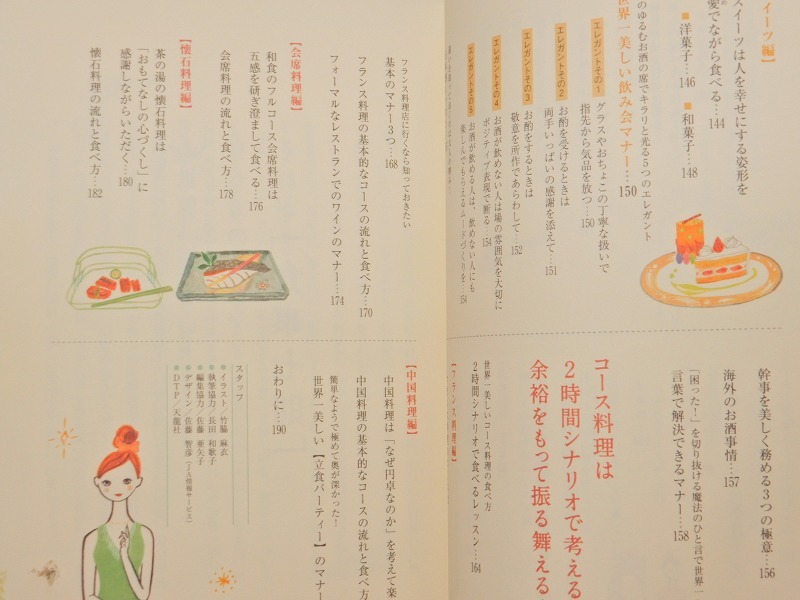 イーツ編】
スイーツは人を幸せにする姿形を
愛でながら食べる…144
■洋菓子…146 ■和菓子…148
世界一美しい飲み会マナー…150
のゆるむお酒の席でキラリと光る5つのエレガント
エレガントその1
グラスやおちょこの丁寧な扱いで
指先から気品を放つ…150
エレガントその2
お酌を受けるときは
両手いっぱいの感謝を添えて…151
エレガントその3
お酌をするときは
敬意を所作であらわして…152
エレガントその4
お酒が飲めない人は場の雰囲気を大切に
ポジティブ表現で断る…154
エレガントその5
お酒が飲める人は、飲めない人にも
楽しんでもらえるムードづくりを…154
幹事を美しく務める3つの極意…156
海外のお酒事情…157
「困った！」を切り抜ける魔法のひと言で世界一
言葉で解決できるマナー…158
コース料理は
2時間シナリオで考える
余裕をもって振る舞える
世界一美しいコース料理の食べ方
2時間シナリオで食べるレッスン…164
【フランス料理編】
フランス料理店に行くなら知っておきたい
基本のマナー3つ…168
フランス料理の基本的なコースの流れと食べ方…170
フォーマルなレストランでのワインのマナー…174
【会席料理編】
和食のフルコース会席料理は
五感を研ぎ澄まして食べる…176
会席料理の流れと食べ方…178
【懐石料理編】
茶の湯の懐石料理は
「おもてなしの心づくし」に
感謝しながらいただく…180
懐石料理の流れと食べ方…182
【中国料理編】
中国料理は「なぜ円卓なのか」を考えて楽
中国料理の基本的なコースの流れと食べ方
簡単なようで極めて奥が深かった！
世界一美しい【立食パーティー】のマナー
おわりに…190
スタッフ
●イラスト／竹脇 麻衣
●執筆協力／長田 和歌子
●編集協力／佐藤 亜矢子
●デザイン／佐藤 智彦（JA情報サービス）
●DTP／天龍社